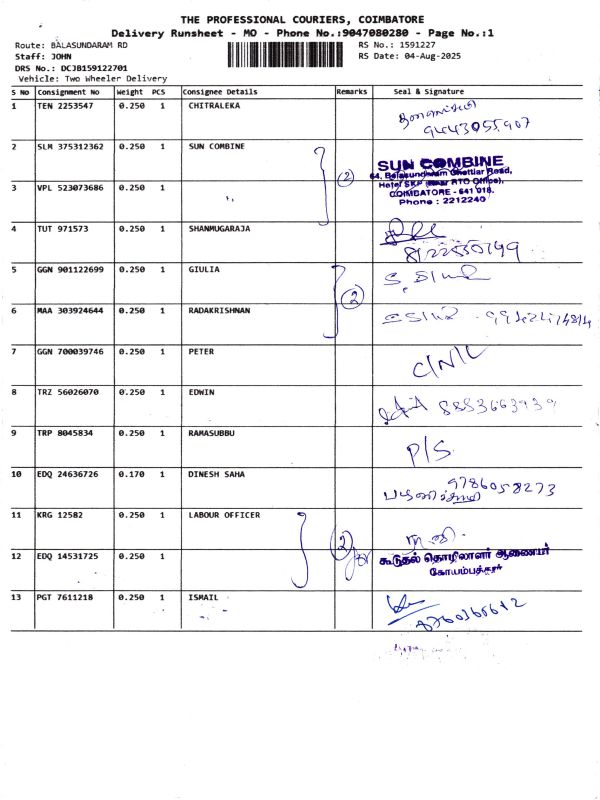 THE PROFESSIONAL COURIERS, COIMBATORE
Delivery Runsheet - MO - Phone No.:9047080280 - Page No.:1
Route: BALASUNDARAM RD
RS No.: 1591227
Staff: JOHN
RS Date: 04-Aug-2025
DRS No.: DCJB159122701
Vehicle: Two Wheeler Delivery
S No Consignment No Weight PCS Consignee Details Remarks Seal & Signature
1 TEN 2253547 0.250 1 CHITRALEKA
9443055907
2 SLM 375312362 0.250 1 SUN COMBINE
SUN COMBINE
64, Balasundaram Chettiar Road,
Hotel SKP (Near RTO Office),
COIMBATORE - 641 018.
Phone : 2212240
2
3 VPL 523073686 0.250 1 "
4 TUT 971573 0.250 1 SHANMUGARAJA
5 GGN 901122699 0.250 1 GIULIA
2
6 MAA 303924644 0.250 1 RADAKRISHNAN
7 GGN 700039746 0.250 1 PETER
C/N/L
8 TRZ 56026070 0.250 1 EDWIN
8883663939
9 TRP 8045834 0.250 1 RAMASUBBU
P/S
10 EDQ 24636726 0.170 1 DINESH SAHA
9786058273
பழனிச்சாமி
11 KRG 12582 0.250 1 LABOUR OFFICER
2
12 EDQ 14531725 0.250 1
கூடுதல் தொழிலாளர் ஆணையர்
கோயம்புத்தூர்
13 PGT 7611218 0.250 1 ISMAIL